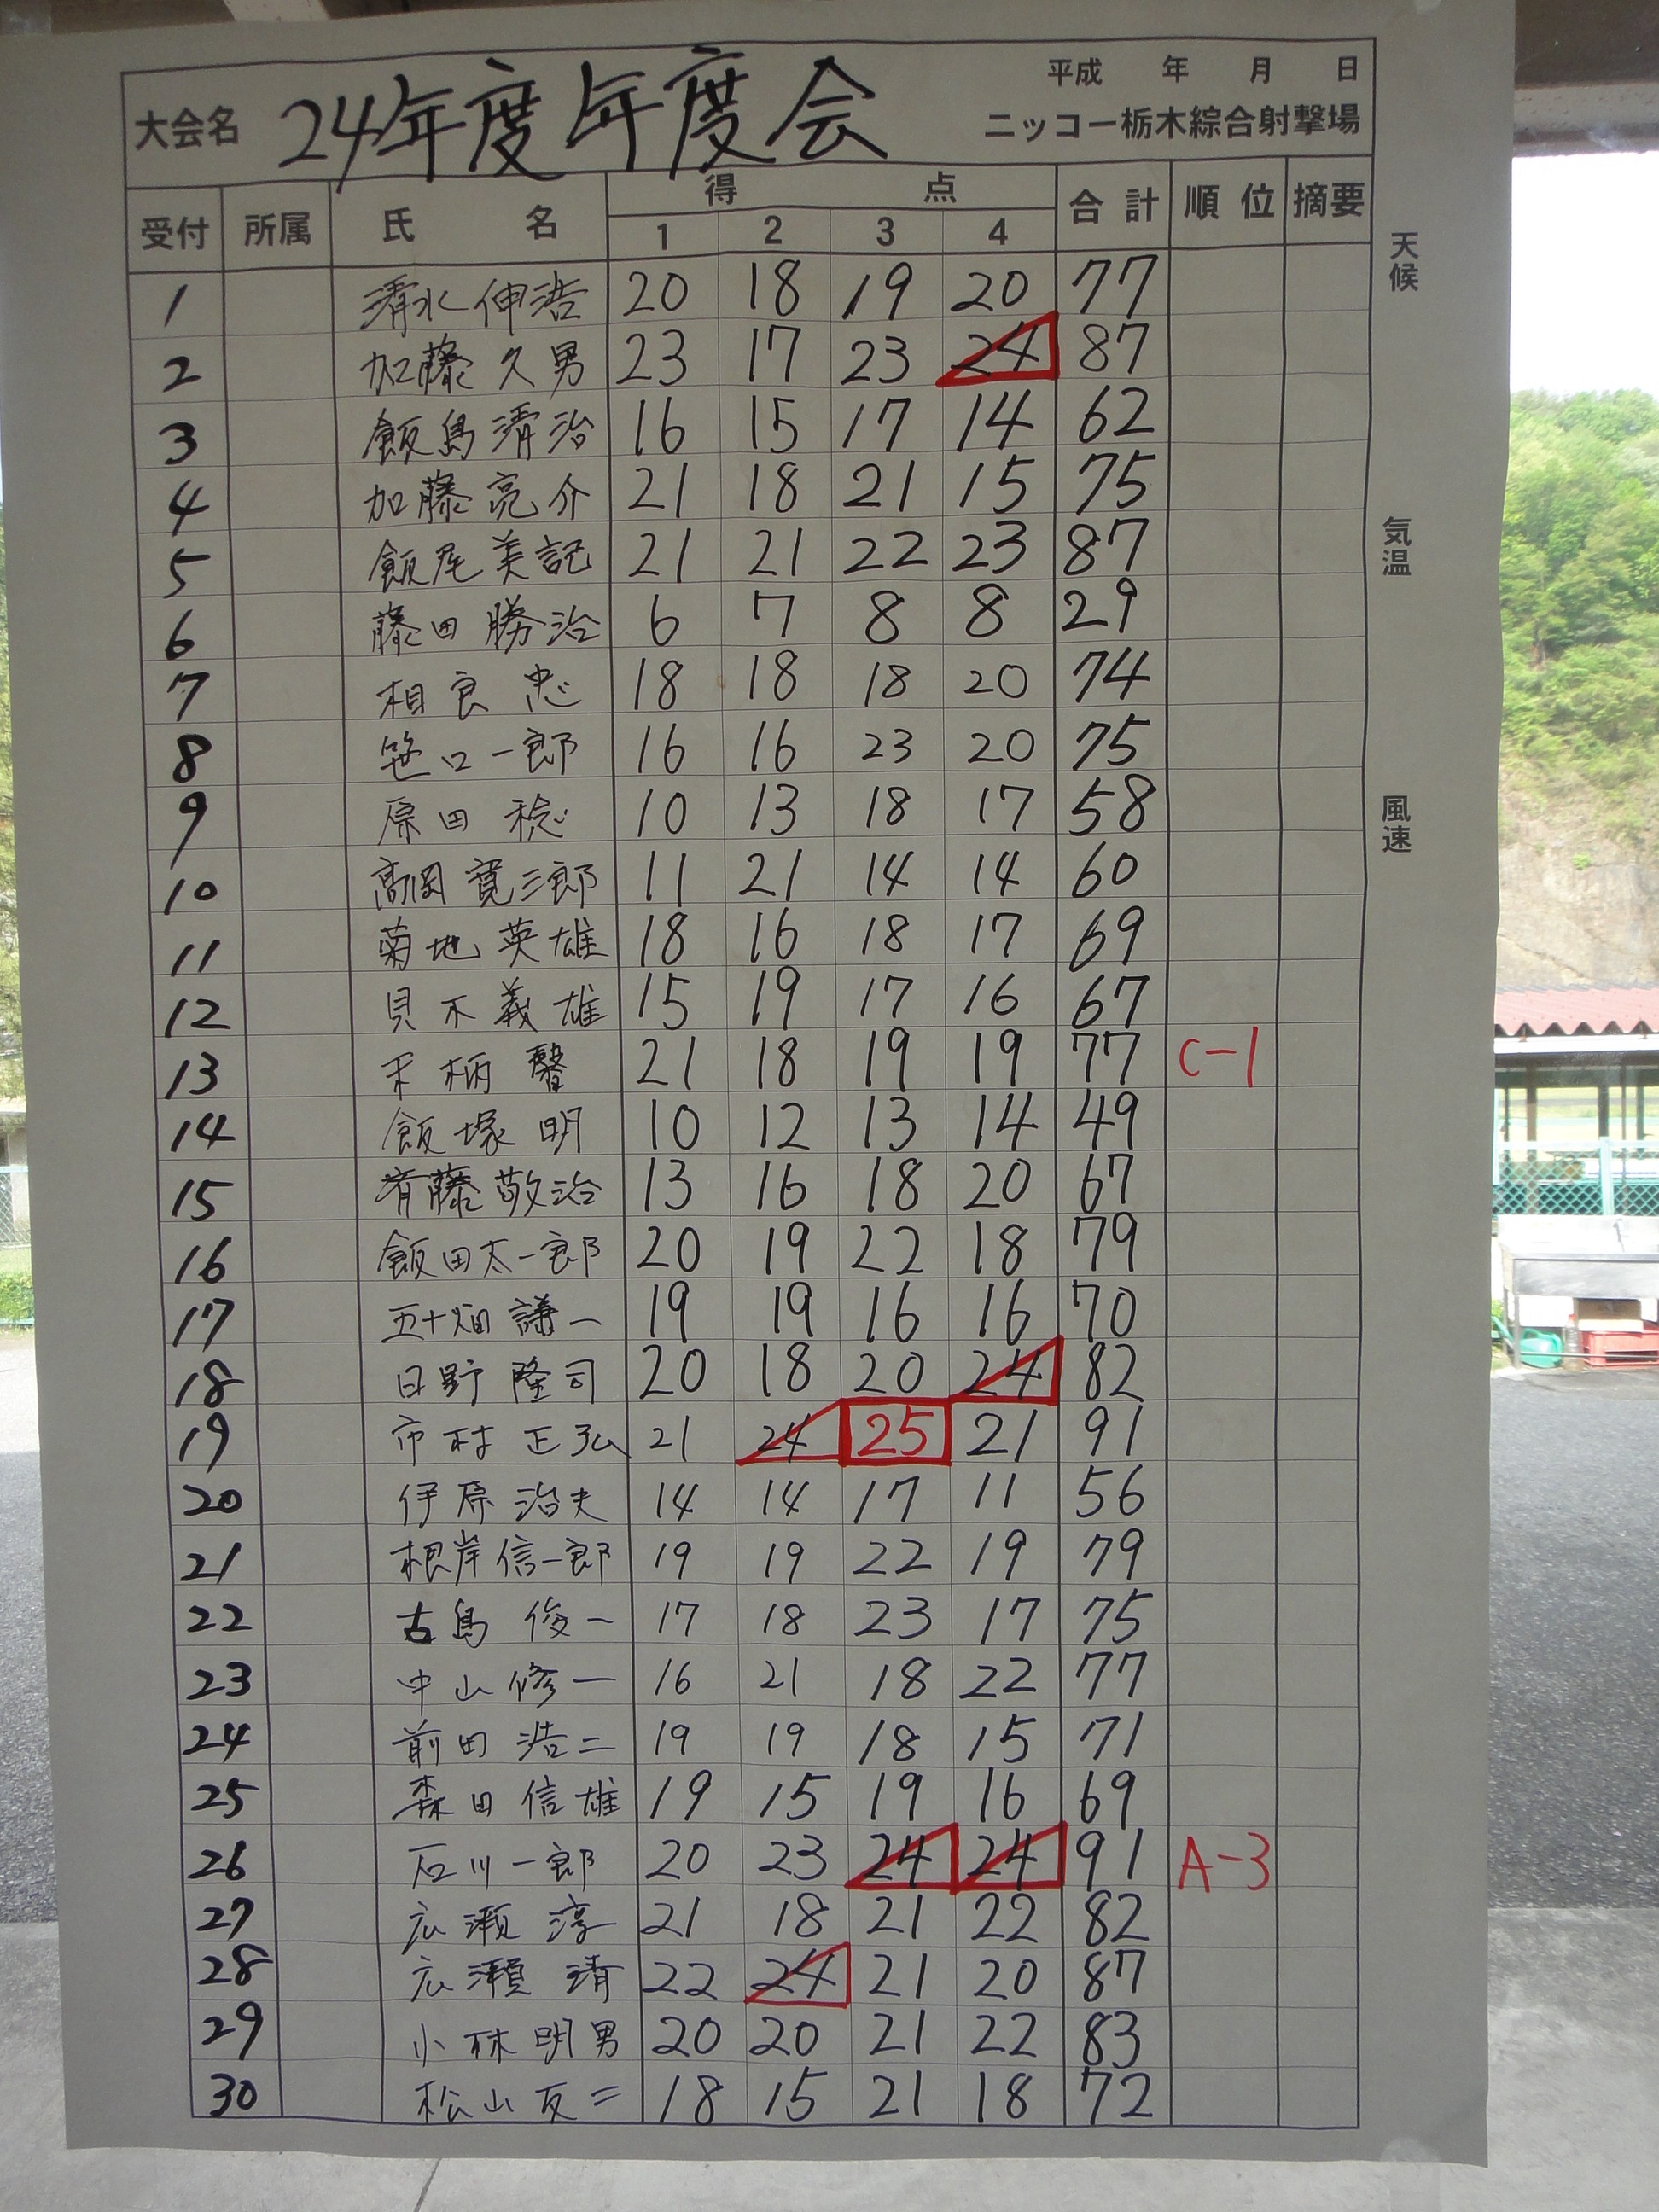 平成 年 月 日
大会名 24年度年度会 ニッコー栃木綜合射撃場
受付 所属 氏名 得点 合計 順位 摘要
1 2 3 4
天候
気温
風速
1 清水伸浩 20 18 19 20 77
2 加藤久男 23 17 23 24 87
3 飯島清治 16 15 17 14 62
4 加藤亮介 21 18 21 15 75
5 飯尾美記 21 21 22 23 87
6 藤田勝治 6 7 8 8 29
7 相良忠 18 18 18 20 74
8 笹口一郎 16 16 23 20 75
9 原田稔 10 13 18 17 58
10 高岡寛三郎 11 21 14 14 60
11 菊地英雄 18 16 18 17 69
12 貝木義雄 15 19 17 16 67
13 柄馨 21 18 19 19 77 C-1
14 飯塚明 10 12 13 14 49
15 斉藤敬治 13 16 18 20 67
16 飯田太一郎 20 19 22 18 79
17 五十畑謙一 19 19 16 16 70
18 日野隆司 20 18 20 24 82
19 市村正弘 21 24 25 21 91
20 伊原治夫 14 14 17 11 56
21 根岸信一郎 19 19 22 19 79
22 古島俊一 17 18 23 17 75
23 中山修一 16 21 18 22 77
24 前田浩二 19 19 18 15 71
25 森田信雄 19 15 19 16 69
26 石川一郎 20 23 24 24 91 A-3
27 広瀬淳 21 18 21 22 82
28 広瀬靖 22 24 21 20 87
29 小林明男 20 20 21 22 83
30 松山友二 18 15 21 18 72